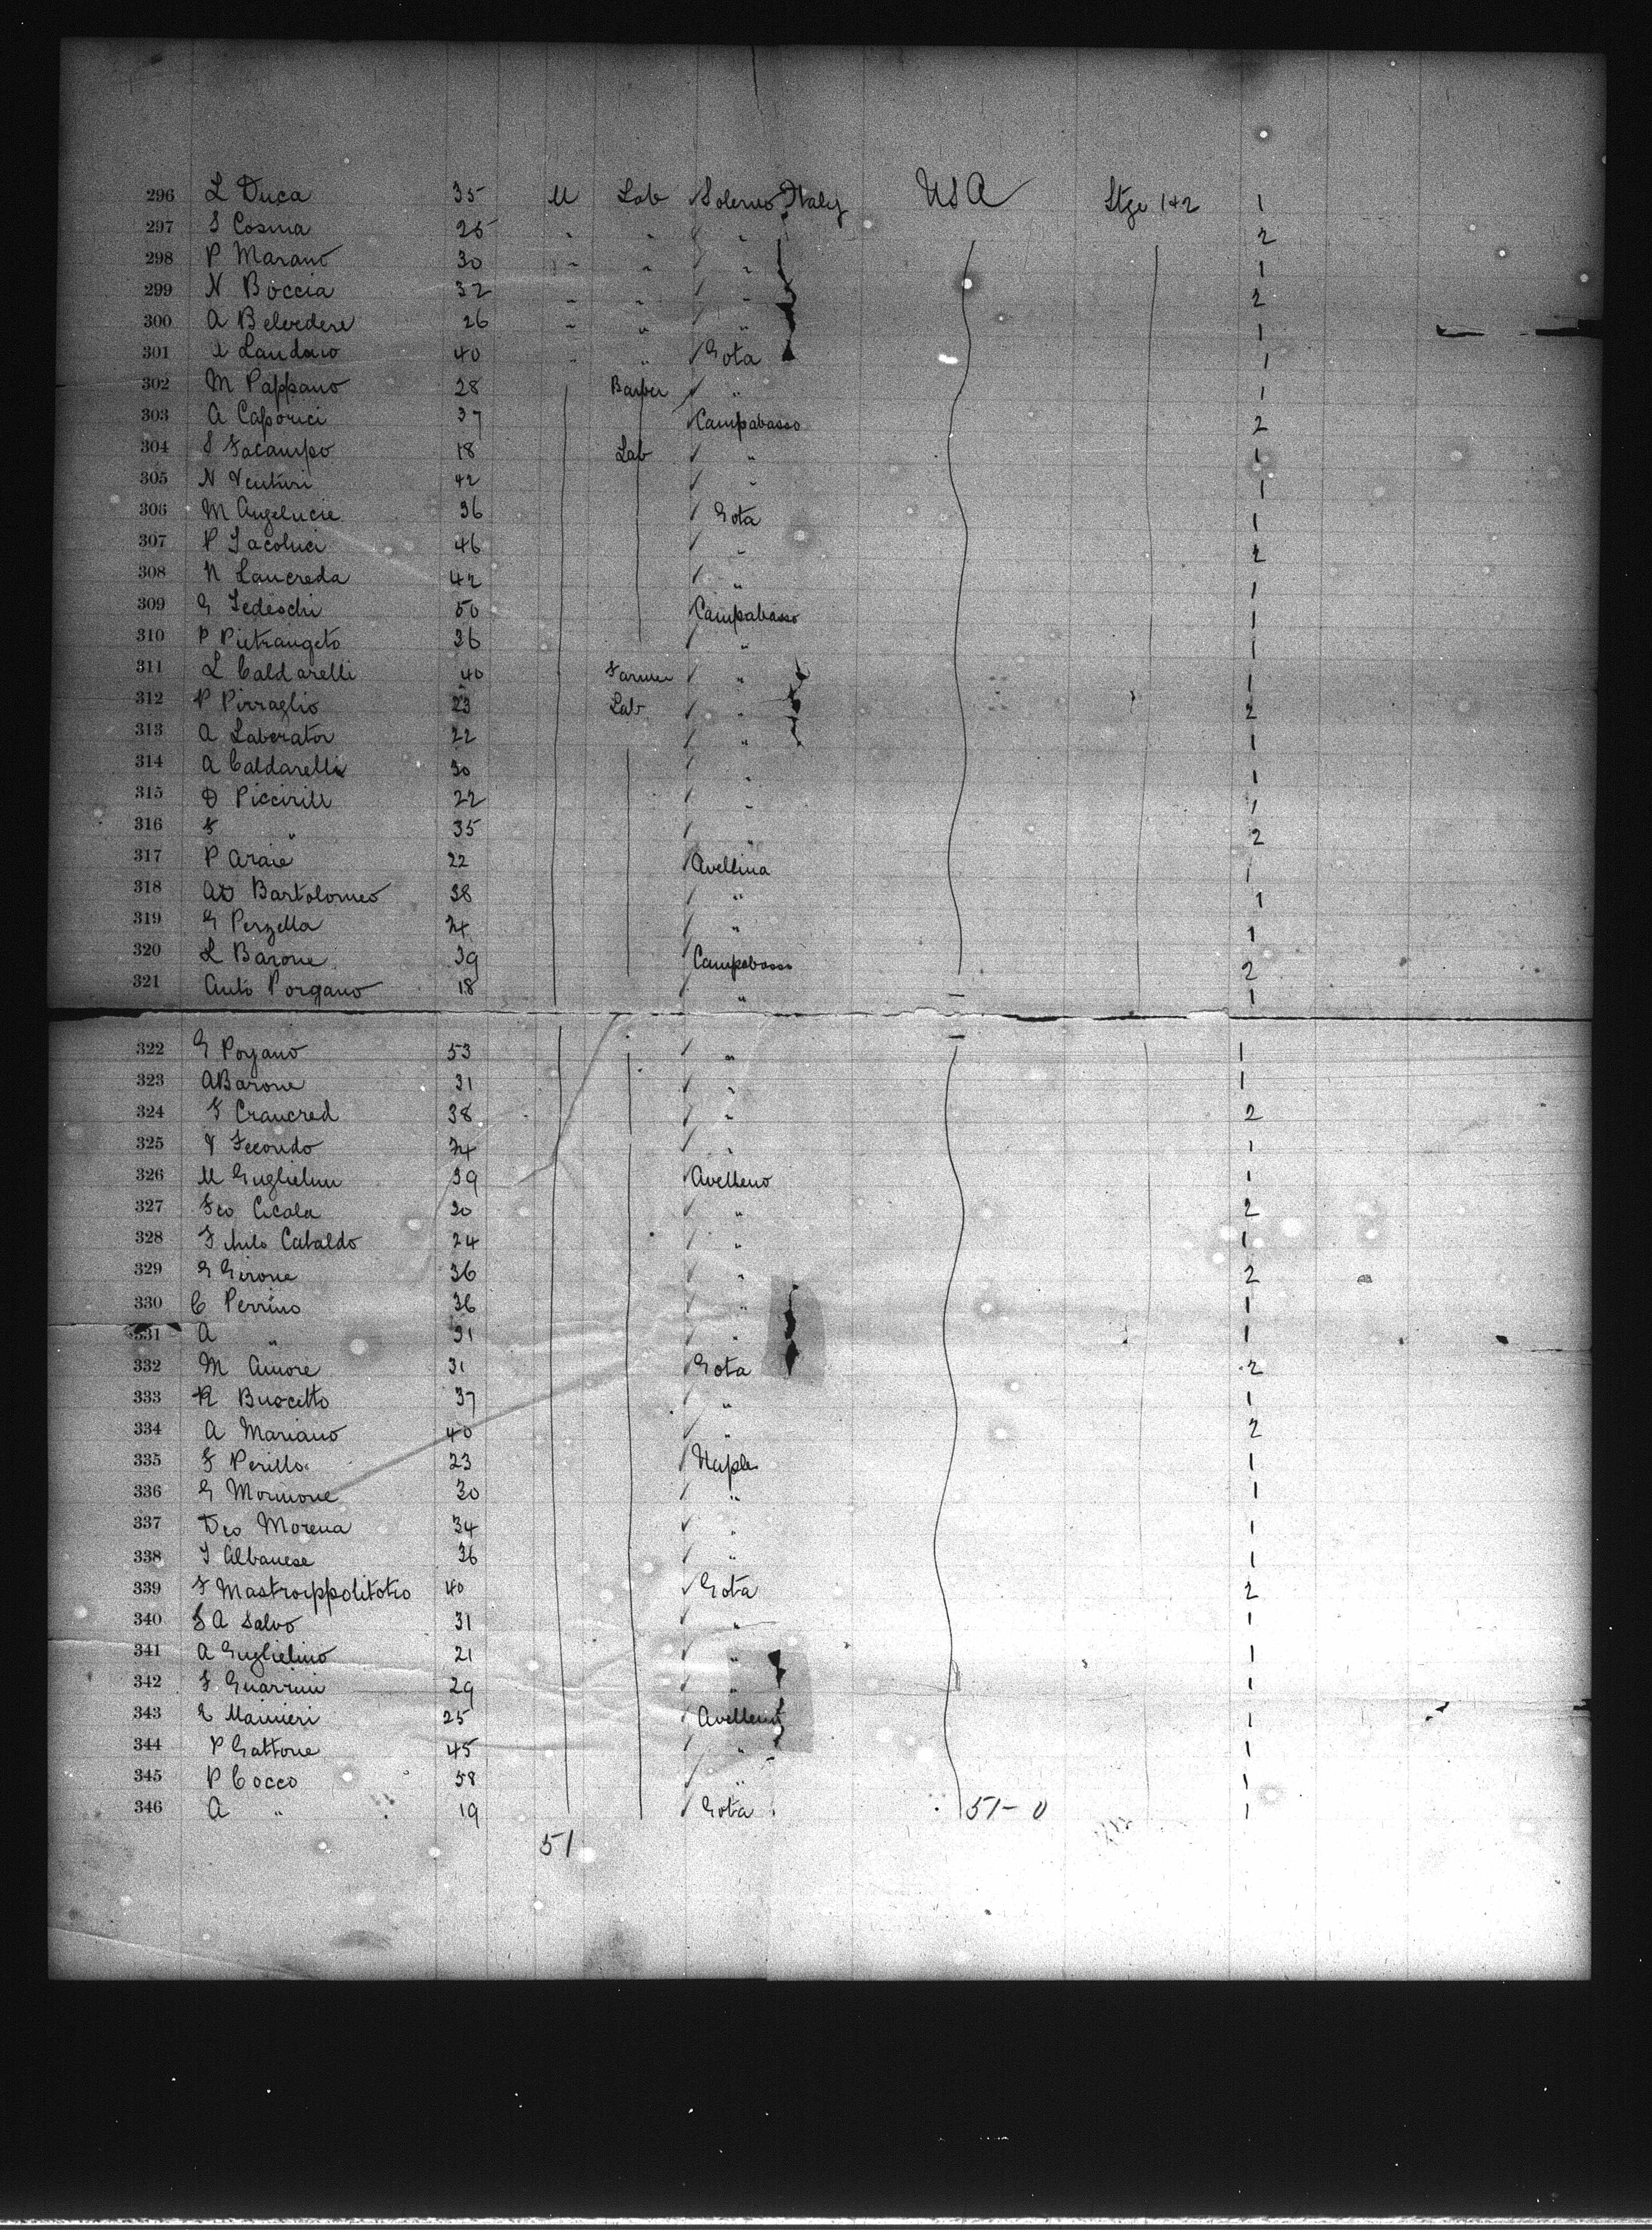 296 L Duca 35 M Lab Solerno Italy USA Stge 1+2 1
297 S Cosma 25 " " " 2
298 P Marano 30 " " " 1
299 N Boccia 32 " " " 2
300 A Belvedere 26 " " " 1
301 Landaio 40 " " Gota 1
302 M Pappano 28 Barber " 1
303 A Caporici 37 Campabasso 2
304 S Iacampo 18 Lab " 1
305 N Venturi 42 " 1
306 M Angelucie 36 Gota 1
307 P Iacoluci 46 " 2
308 N Lancreda 42 " 1
309 G Tedeschi 50 Campabasso 1
310 P Pietrangelo 36 " 1
311 L Caldarelli 40 Farmer " 1
312 P Pirraglio 23 Lab " 2
313 A Laberator 22 " 1
314 A Caldarelli 30 " 1
315 D Piccirill 22 " 1
316 F " 35 " 2
317 P Araie 22 Avellina 1
318 AD Bartolomeo 38 " 1
319 G Perzella 24 " 1
320 L Barone 39 Campobasso 2
321 Anto Porgano 18 " 1
322 G Pogano 53 " 1
323 A Barone 31 " 1
324 F Crancred 38 " 2
325 V Fecondo 24 " 1
326 M Guglielmi 39 Avelleno 1
327 Fco Cicala 20 " 2
328 Cataldo 24 " 1
329 G Girone 36 " 2
330 C Perrino 36 " 1
331 A " 31 " 1
332 M Amore 31 Gota 2
333 R Buscetto 37 " 1
334 A Mariano 40 " 2
335 F Perillo 23 Naples 1
336 G Mormone 30 " 1
337 Dco Morena 34 " 1
338 I Albanese 36 " 1
339 F Mastroippolitotio 40 Gota 2
340 S A Salvo 31 " 1
341 A Guglielmo 21 " 1
342 F Guarrini 29 " 1
343 E Mainieri 25 Avelleno 1
344 P Gattone 45 " 1
345 P Cocco 58 " 1
346 A " 19 Gota 51-0 1
51